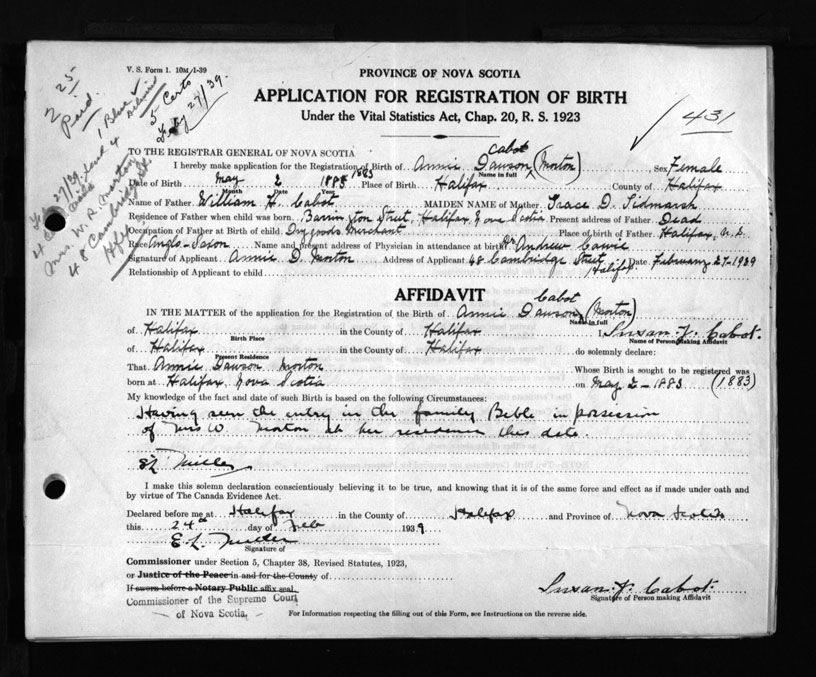 V. S. Form 1. 10M/1-39
2 25
Paid.
5 Certs
Feby 27/39.
1 Blue
Mrs. W. R. Morton
48 Cambridge St.
Hfx
PROVINCE OF NOVA SCOTIA
APPLICATION FOR REGISTRATION OF BIRTH
Under the Vital Statistics Act, Chap. 20, R. S. 1923
431
TO THE REGISTRAR GENERAL OF NOVA SCOTIA
Cabot
I hereby make application for the Registration of Birth of Annie Dawson (Morton) Sex Female
Name in full
1883
Date of Birth May 2 1883 Place of Birth Halifax County of Halifax
Month Date Year
Name of Father William H. Cabot MAIDEN NAME of Mother Grace D. Tidmarsh
Residence of Father when child was born Barrington Street, Halifax, Nova Scotia Present address of Father Dead
Occupation of Father at Birth of child Drygoods Merchant Place of birth of Father Halifax, N. S.
Race Anglo-Saxon Name and present address of Physician in attendance at birth Dr Andrew Cowie
Signature of Applicant Annie D. Morton Address of Applicant 48 Cambridge Street Halifax Date February 27-1939
Relationship of Applicant to child
AFFIDAVIT
Cabot
IN THE MATTER of the application for the Registration of the Birth of Annie Dawson (Morton)
Name in full
of Halifax in the County of Halifax I, Susan J. Cabot.
Birth Place Name of Person Making Affidavit
of Halifax in the County of Halifax do solemnly declare:
Present Residence
That Annie Dawson Morton Whose Birth is sought to be registered was
born at Halifax, Nova Scotia on May 2-1883 (1883)
My knowledge of the fact and date of such Birth is based on the following Circumstances:
Having seen the entry in the family Bible in possession
of Mrs W. Morton at her residence this date.
E L Miller
I make this solemn declaration conscientiously believing it to be true, and knowing that it is of the same force and effect as if made under oath and
by virtue of The Canada Evidence Act.
Declared before me at Halifax in the County of Halifax and Province of Nova Scotia
this 24th day of Feb 1939
E. L. Miller
Signature of
Commissioner under Section 5, Chapter 38, Revised Statutes, 1923,
or Justice of the Peace in and for the County of
If sworn before a Notary Public affix seal.
Commissioner of the Supreme Court
of Nova Scotia.
Susan J. Cabot.
Signature of Person making Affidavit
For Information respecting the filling out of this Form, see Instructions on the reverse side.